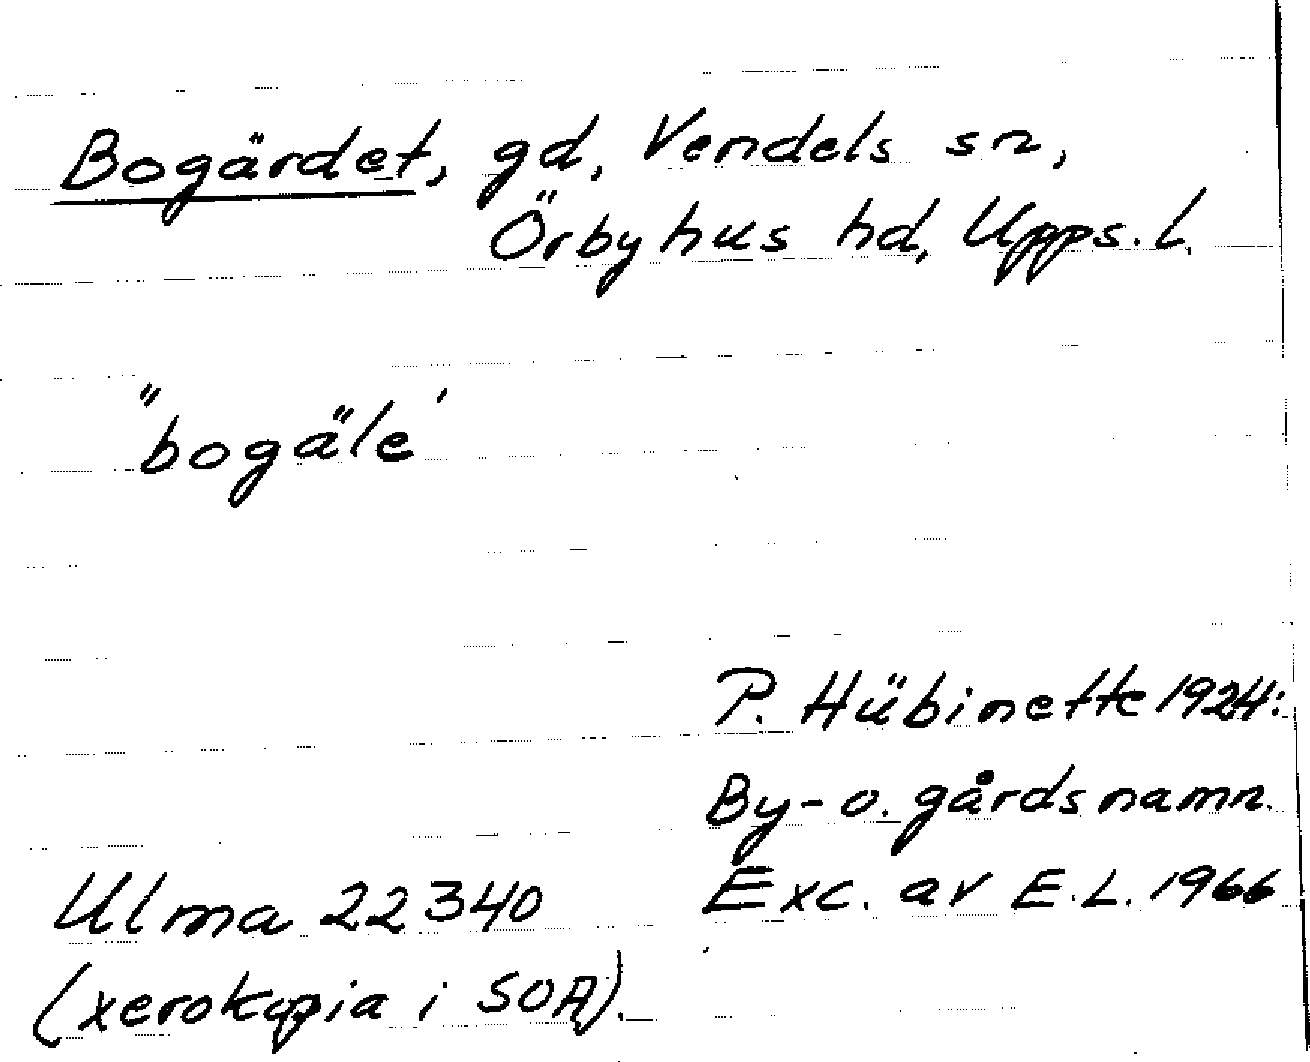 Bogärdet, gd, Vendels sn,
Örbyhus hd, Upps. l.
"bogäle'
P. Hübinette 1924:
By- o. gårdsnamn.
Exc. av E.L. 1966
Ulma 22340
(xerokopia i SOA).